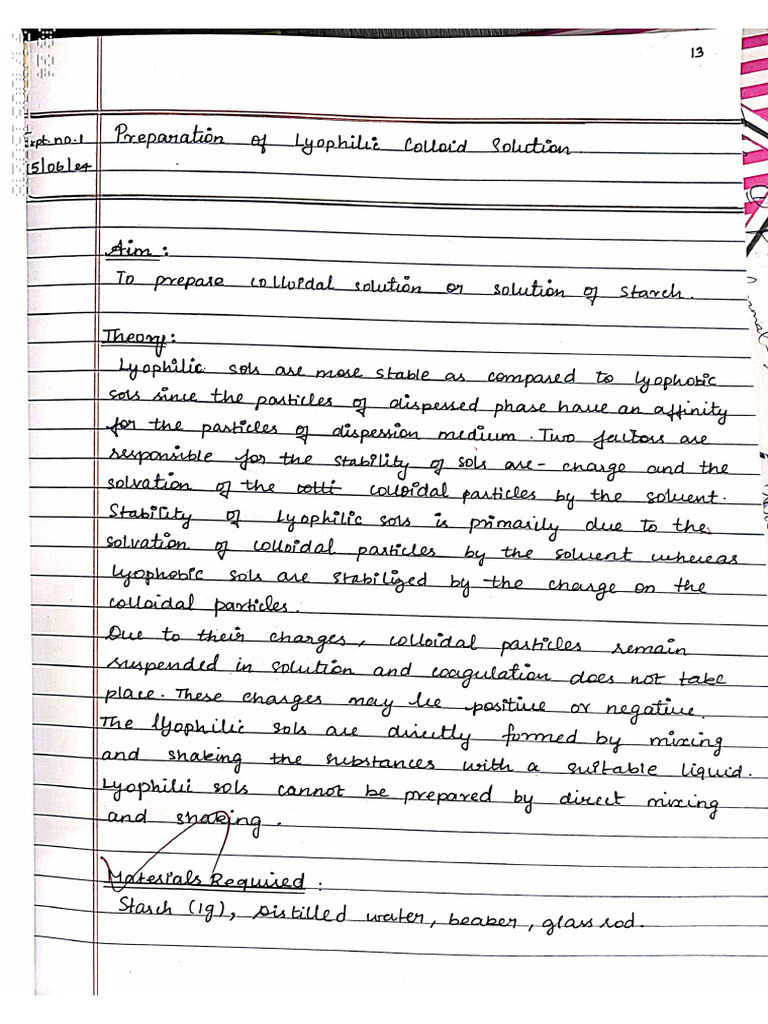 13
Expt. no. 1 Preparation of Lyophilic Colloid Solution.
15/06/24
Aim :
To prepare colloidal solution or solution of starch.
Theory :
Lyophilic sols are more stable as compared to lyophobic
sols since the particles of dispersed phase have an affinity
for the particles of dispersion medium. Two factors are
responsible for the stability of sols are - charge and the
solvation of the colli colloidal particles by the solvent.
Stability of lyophilic sols is primarily due to the
solvation of colloidal particles by the solvent whereas
lyophobic sols are stabilized by the charge on the
colloidal particles.
Due to their charges, colloidal particles remain
suspended in solution and coagulation does not take
place. These charges may be positive or negative.
The lyophilic sols are directly formed by mixing
and shaking the substances with a suitable liquid.
Lyophilic sols cannot be prepared by direct mixing
and shaking.
Materials Required :
Starch (1g), Distilled water, beaker, glass rod.